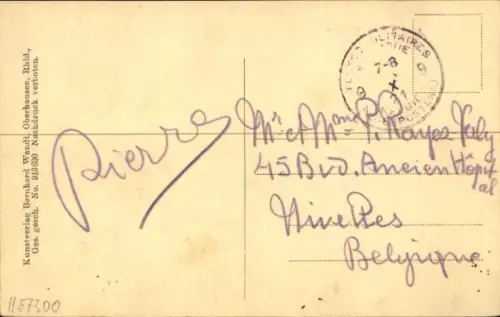 Kunstverlag Bernhard Wandt, Oberhausen, Rhld.,
Ges. gesch. No. 913690 Nachdruck verboten.
Pierre
POSTES MILITAIRES
7-8
9 9
X
Mr et Mme P.
45 Bvd. Ancien Hôpit
al
Nivelles
Belgique
1157300